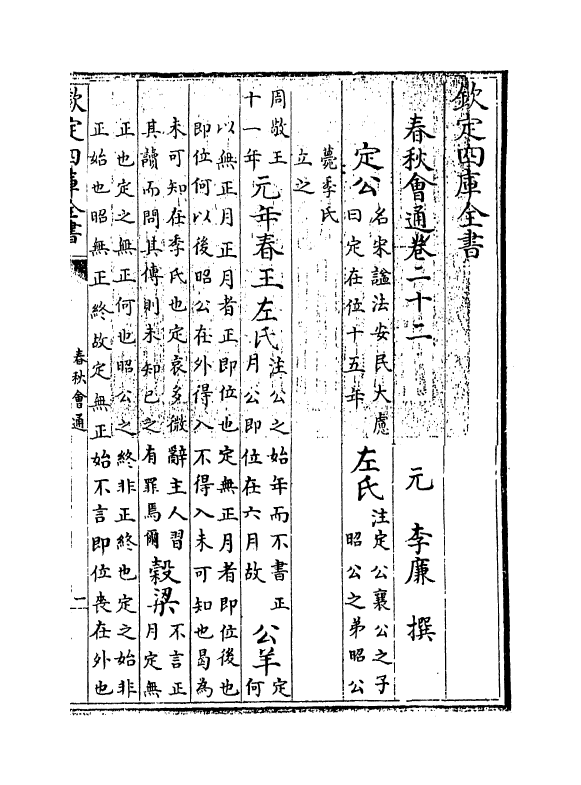 欽定四庫全書
春秋會通卷二十二 元 李廉 撰
定公 名宋諡法安民大慮
曰定在位十五年 左氏 注定公襄公之子
昭公之弟昭公
薨季氏
立之
周敬王
十一年 元年春王 左氏 注公之始年而不書正
月公即位在六月故 公羊 定
何
以無正月正月者正即位也定無正月者即位後也
即位何以後昭公在外得入不得入未可知也曷為
未可知在季氏也定哀多微辭主人習
其讀而問其傳則未知己之有罪焉爾 穀梁 不言正
月定無
正也定之無正何也昭公之終非正終也定之始非
正始也昭無正終故定無正始不言即位喪在外也
欽定四庫全書
春秋會通